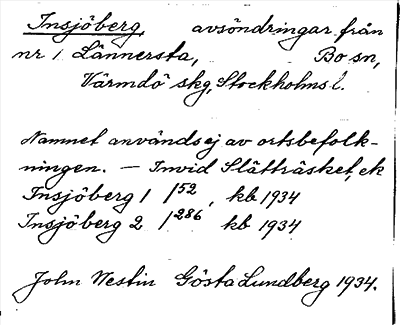 Insjöberg, avsöndringar från
nr 1 Lännersta, Bo sn,
Värmdö skg, Stockholms l.
Namnet användes ej av ortsbefolk-
ningen. — Invid Slätträsket, ek
Insjöberg 1 1/52, kb 1934
Insjöberg 2 1/286 kb 1934
John Westin Gösta Lundberg 1934.